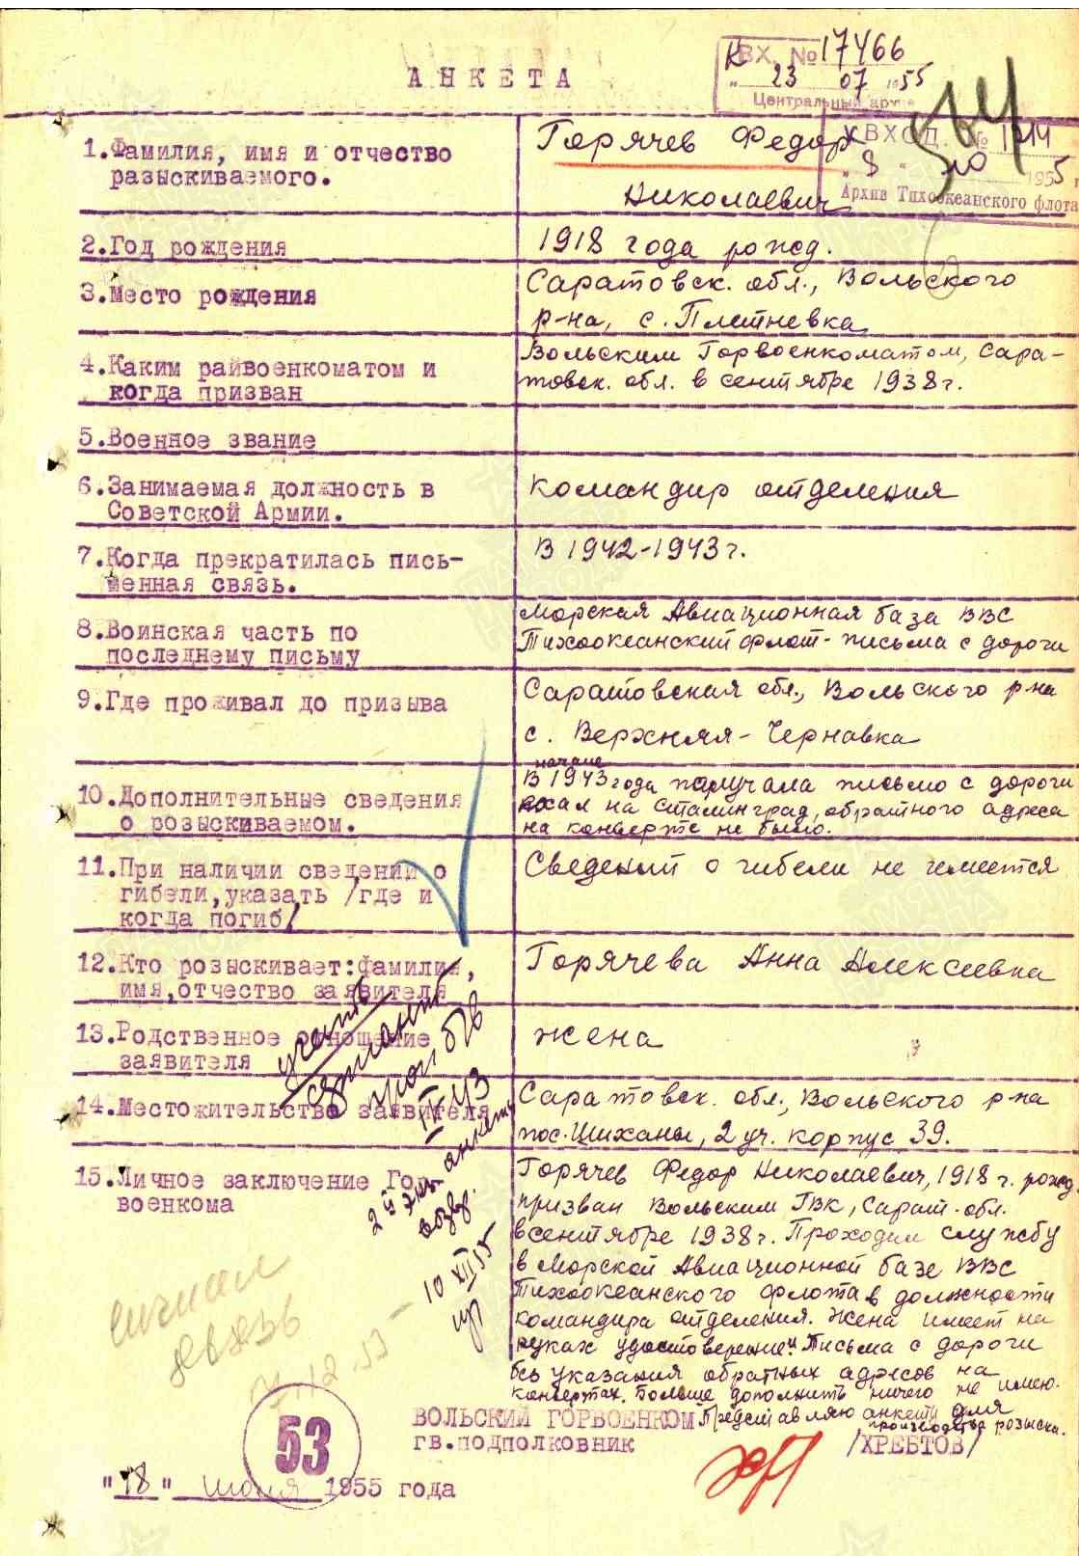 АНКЕТА
ВХ. № 17466
" 23 07 1955
Центральный архив
ВХОД. № 1214
" 8 " 10 1955 г
Архив Тихоокеанского флота
1.Фамилия, имя и отчество
разыскиваемого.
Горячев Федор
Николаевич
2.Год рождения
1918 года рожд.
3.Место рождения
Саратовск. обл., Вольского
р-на, с. Плетневка
4.Каким райвоенкоматом и
когда призван
Вольским Горвоенкоматом, Сара-
товск. обл. в сентябре 1938 г.
5.Военное звание
6.Занимаемая должность в
Советской Армии.
командир отделения
7.Когда прекратилась пись-
менная связь.
В 1942-1943 г.
8.Воинская часть по
последнему письму
Морская Авиационная база ВВС
Тихоокеанский флот - письма с дороги
9.Где проживал до призыва
Саратовская обл., Вольского р-на
с. Верхняя-Чернавка
10.Дополнительные сведения
о розыскиваемом.
начале
В 1943 года получала письмо с дороги
ехал на Сталинград, обратного адреса
на конверте не было.
11.При наличии сведений о
гибели, указать /где и
когда погиб/
Сведений о гибели не имеется
12.Кто розыскивает:фамилия,
имя,отчество заявителя
Горячева Анна Алексеевна
13.Родственное отношение
заявителя
жена
14.Местожительство заявителя
Саратовск. обл., Вольского р-на
пос. Шиханы, 2 уч. корпус 39.
15.Личное заключение Гор
военкома
Горячев Федор Николаевич, 1918 г. рожд.
призван Вольским ГВК, Сарат. обл.
в сентябре 1938 г. Проходил службу
в Морской Авиационной базе ВВС
Тихоокеанского флота в должности
командира отделения. Жена имеет на
руках удостоверение и письма с дороги
без указания обратных адресов на
конвертах. Больше дополнить ничего не имею.
Представляю анкету для
производства розыска.
учесть
IV-43
2й экз. анкеты
возвр.
10 XII 55
53
ВОЛЬСКИЙ ГОРВОЕНКОМ
гв.подполковник
/ХРЕБТОВ/
"18" июля 1955 года